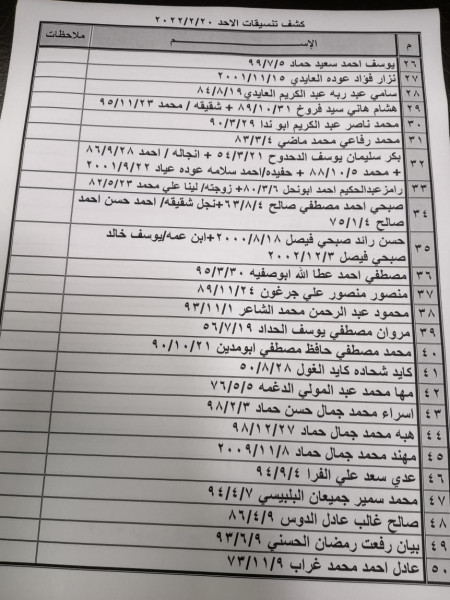 كشف تنسيقات الاحد ٢٠٢٢/٢/٢٠
م الإســـــــم ملاحظات
٢٦ يوسف احمد سعيد حماد ٩٩/٧/٥
٢٧ نزار فؤاد عوده العايدي ٢٠٠١/١١/١٥
٢٨ سامي عبد ربه عبد الكريم العايدي٨٤/٨/١٩
٢٩ هشام هاني سيد فروخ ٨٩/١٠/٣١ + شقيقه / محمد ٩٥/١١/٢٣
٣٠ محمد ناصر عبد الكريم ابو ندا ٩٠/٣/٢٩
٣١ محمد رفاعي محمد ماضي ٨٣/٣/٤
٣٢ بكر سليمان يوسف الدحدوح ٥٤/٣/٢١ + انجاله / احمد ٨٦/٩/٢٨
+ محمد ٨٨/١٠/٥ + حفيده/احمد سلامه عوده عياد ٢٠٠١/٩/٢٢
٣٣ رامزعبدالحكيم احمد ابونحل ٨٠/٣/٦+ زوجته/ لينا علي محمد ٨٢/٥/٢٣
٣٤ صبحي احمد مصطفي صالح ٦٣/٨/٤+نجل شقيقه/ احمد حسن احمد
صالح ٧٥/١/٤
٣٥ حسن رائد صبحي فيصل ٢٠٠٠/٨/١٨+ابن عمه/يوسف خالد
صبحي فيصل ٢٠٠٢/١٢/٣
٣٦ مصطفي احمد عطا الله ابوصفيه ٩٥/٣/٣٠
٣٧ منصور منصور علي جرغون ٨٩/١١/٢٤
٣٨ محمود عبد الرحمن محمد الشاعر ٩٣/١١/١
٣٩ مروان مصطفي يوسف الحداد ٥٦/٧/١٩
٤٠ محمد مصطفي حافظ مصطفي ابومدين ٩٠/١٠/٢١
٤١ كايد شحاده كايد الغول ٥٠/٨/٢٨
٤٢ مها محمد عبد المولي الدغمه ٧٦/٥/٥
٤٣ اسراء محمد جمال حسن حماد ٩٨/٢/٣
٤٤ هبه محمد جمال حماد ٩٨/١٢/٢٧
٤٥ مهند محمد جمال حماد ٢٠٠٩/١١/٨
٤٦ عدي سعد علي الفرا ٩٤/٩/٤
٤٧ محمد سمير جميعان البلبيسي ٩٤/٤/٧
٤٨ صالح غالب عادل الدوس ٨٦/٤/٩
٤٩ بيان رفعت رمضان الحسني ٩٣/٦/٩
٥٠ عادل احمد محمد غراب ٧٣/١١/٩